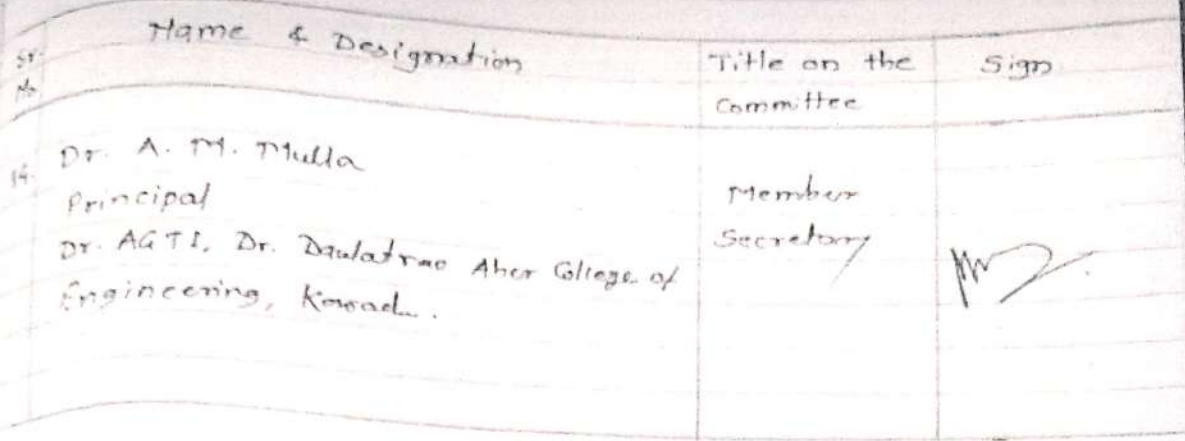 Sr. No. Name & Designation Title on the Committee Sign
14. Dr. A. M. Mulla
Principal
Dr. AGTI, Dr. Daulatrao Aher College of
Engineering, Karad.
Member
Secretary